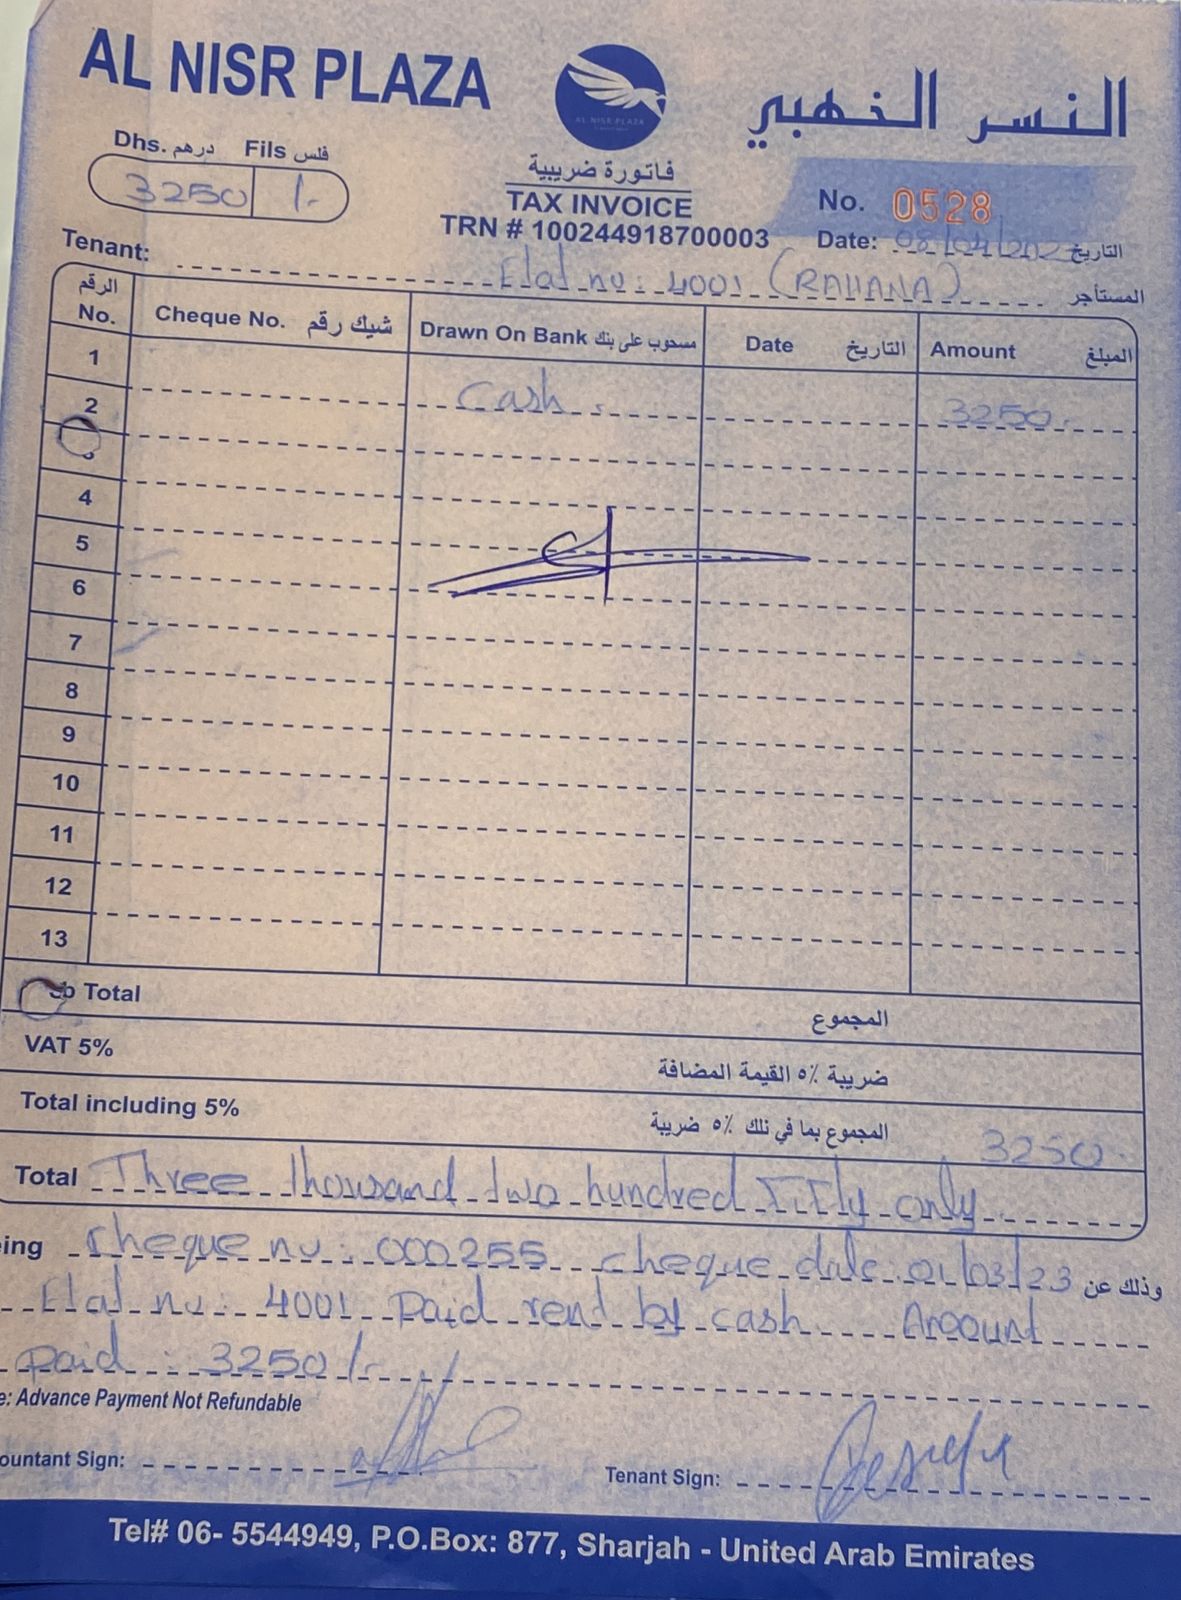 AL NISR PLAZA
النسر الذهبي
AL NISR PLAZA
Dhs. درهم Fils فلس
3250 /-
فاتورة ضريبية
TAX INVOICE
TRN # 100244918700003
No. 0528
Date: 08/04/202 التاريخ
Tenant: Flat no: 4001 (RAHANA) المستأجر
الرقم No. Cheque No. شيك رقم Drawn On Bank مسحوب على بنك Date التاريخ Amount المبلغ
1 Cash. 3250.
2
3
4
5
6
7
8
9
10
11
12
13
Sub Total المجموع
VAT 5% ضريبة ٥٪ القيمة المضافة
Total including 5% المجموع بما في ذلك ٥٪ ضريبة 3250.
Total Three thousand two hundred Fifty only
ing cheque no: 000255 cheque date: 01/03/23 وذلك عن
Flat no: 4001 Paid rend by cash Amount
Paid: 3250/-
e: Advance Payment Not Refundable
ountant Sign:
Tenant Sign:
Tel# 06- 5544949, P.O.Box: 877, Sharjah - United Arab Emirates